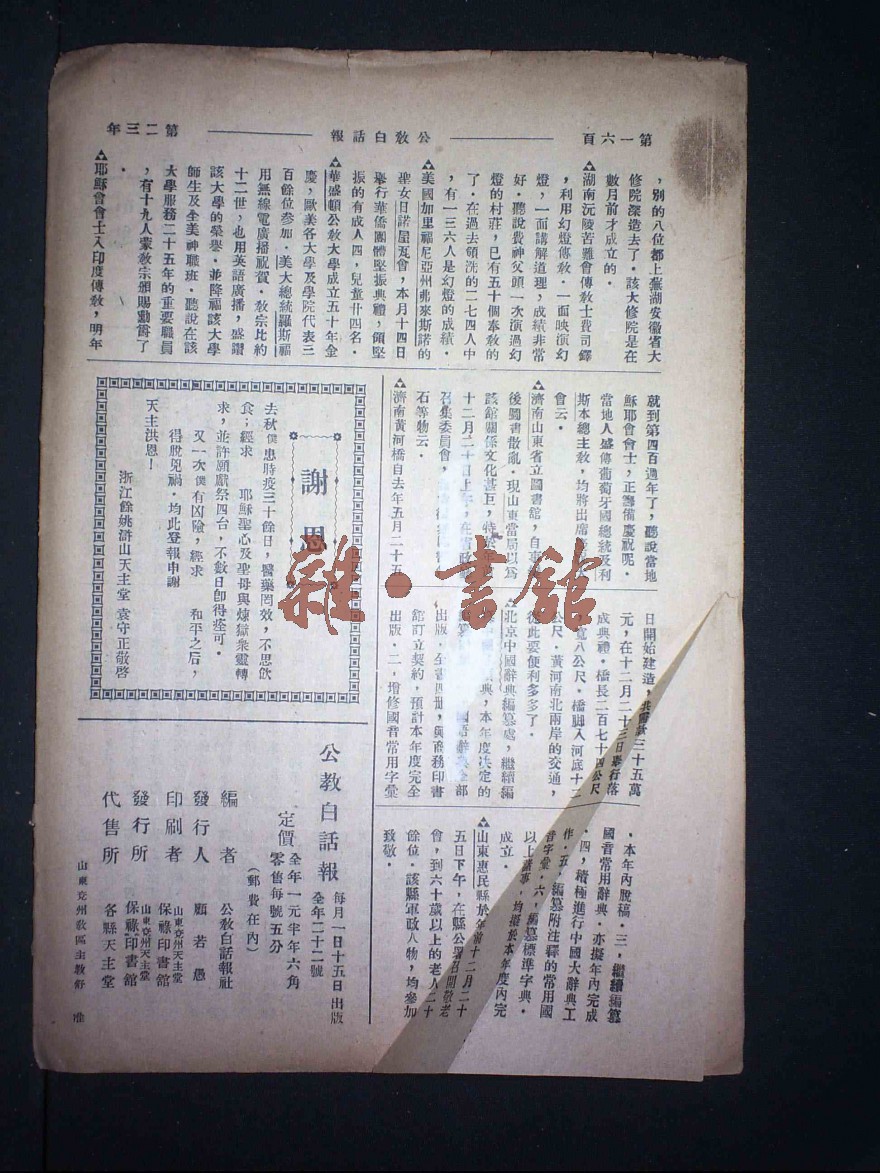 第一六頁
公教白話報
第二三年
，別的八位都上蕪湖安徽省大
修院深造去了．該大修院是在
數月前才成立的．
▲湖南沅陵苦難會傳教士費司鐸
，利用幻燈傳教．一面映演幻
燈，一面講解道理，成績非常
好．聽說費神父頭一次演過幻
燈的村莊，已有五十個奉教的
了．在過去領洗的一七四人中
，有一三六人是幻燈的成績．
▲美國加里福尼亞州弗來斯諾的
聖女日諾屋瓦會，本月十四日
舉行華僑團體堅振典禮，領堅
振的有成人四，兒童廿四名．
▲華盛頓公教大學成立五十年金
慶，歐美各大學及學院代表三
百餘位參加．美大總統羅斯福
用無線電廣播祝賀．教宗比約
十二世，也用英語廣播，盛讚
該大學的榮譽．並降福該大學
師生及全美神職班．聽說在該
大學服務二十五年的重要職員
，有十九人蒙教宗頒賜勳爵了
．
▲耶穌會會士入印度傳教，明年
就到第四百週年了，聽說當地
穌耶會會士，正籌備慶祝呢．
當地人盛傳葡萄牙國總統及利
斯本總主教，均將出席
會云．
▲濟南山東省立圖書館，自事
後圖書散亂．現山東當局以為
該館關係文化甚巨，特
十二月二十日上午，在省政
召集委員會，
石等物云．
▲濟南黃河橋自去年五月二十五
日開始建造，共需款三十五萬
元，在十二月二十三日舉行落
成典禮．橋長二百七十四公尺
，寬八公尺．橋脚入河底十二
公尺．黃河南北兩岸的交通，
從此要便利多多了．
▲北京中國辭典編纂處，繼續編
典，本年度決定的
國語辭典全部
出版．全書四册，與商務印書
館訂立契約，預計本年度完全
出版．二，增修國音常用字彙
．本年內脫稿．三，繼續編纂
國音常用辭典．亦擬年內完成
．四，積極進行中國大辭典工
作．五，編纂附注釋的常用國
音字彙．六，編纂標準字典．
以上議事，均擬於本年度內完
成立．
▲山東惠民縣於年前十二月二十
五日下午，在縣公署召開敬老
會，到六十歲以上的老人二十
餘位．該縣軍政人物，均參加
致敬．
謝恩
去秋僕患時疫三十餘日，醫藥罔效，不思飲
食；經求　耶穌聖心及聖母與煉獄衆靈轉
求，並許願獻祭四台，不數日卽得痊可．
又一次僕有凶險，經求　和平之后，
得脫兇禍．均此登報申謝
天主洪恩！
浙江餘姚滸山天主堂 袁守正敬啓
公教白話報
每月一日十五日出版
全年二十二號
定價
全年一元半年六角
零售每號五分
（郵費在內）
編者　公教白話報社
發行人　顧若愚
印刷者　山東兗州天主堂保祿印書館
發行所　山東兗州天主堂保祿印書館
代售所　各縣天主堂
山東兗州教區主教舒　准
雜·書館